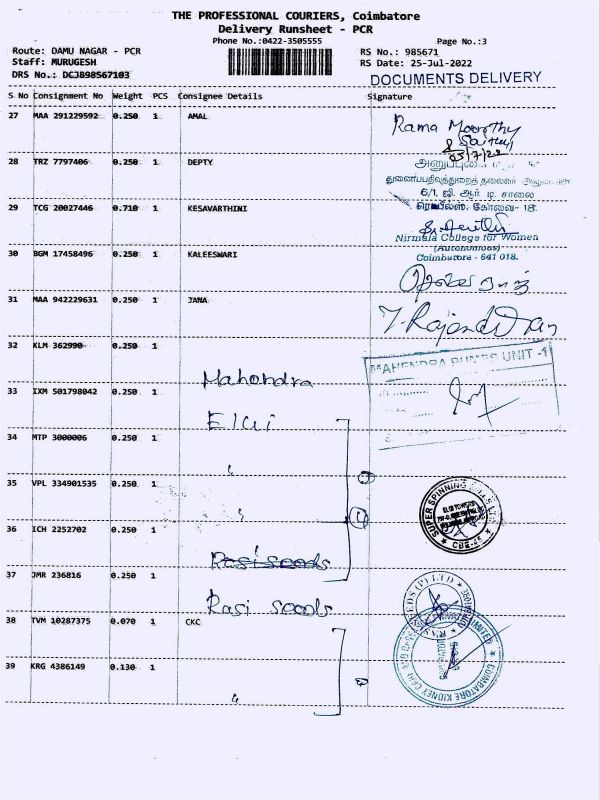 THE PROFESSIONAL COURIERS, Coimbatore
Delivery Runsheet - PCR
Phone No.:0422-3505555
Page No.:3
Route: DAMU NAGAR - PCR
RS No.: 985671
Staff: MURUGESH
RS Date: 25-Jul-2022
DRS No.: DCJB98567103
DOCUMENTS DELIVERY
S No Consignment No Weight PCS Consignee Details Signature
27 MAA 291229592 0.250 1 AMAL
Rama Moorthy
28 TRZ 7797406 0.250 1 DEPTY
6/1, ஜி. ஆர். டி. சாலை
29 TCG 20027446 0.710 1 KESAVARTHINI
கோவை- 18.
Nirmala College for Women
(Autonomous)
Coimbatore - 641 018.
30 BGM 17458496 0.250 1 KALEESWARI
31 MAA 942229631 0.250 1 JANA
T. Rajendran
32 KLM 362990 0.250 1
Mahendra
MAHENDRA PUMPS UNIT -1
33 IXM 501798042 0.250 1
Elgi
34 MTP 3000006 0.250 1
"
35 VPL 334901535 0.250 1
"
SUPER SPINNING MILLS LTD
ELGI TOWERS
CBE-45
36 ICH 2252702 0.250 1
Rasi seeds
37 JMR 236816 0.250 1
Rasi seeds
38 TVM 10287375 0.070 1 CKC
39 KRG 4386149 0.130 1
"
COIMBATORE KIDNEY CENTRE LIMITED